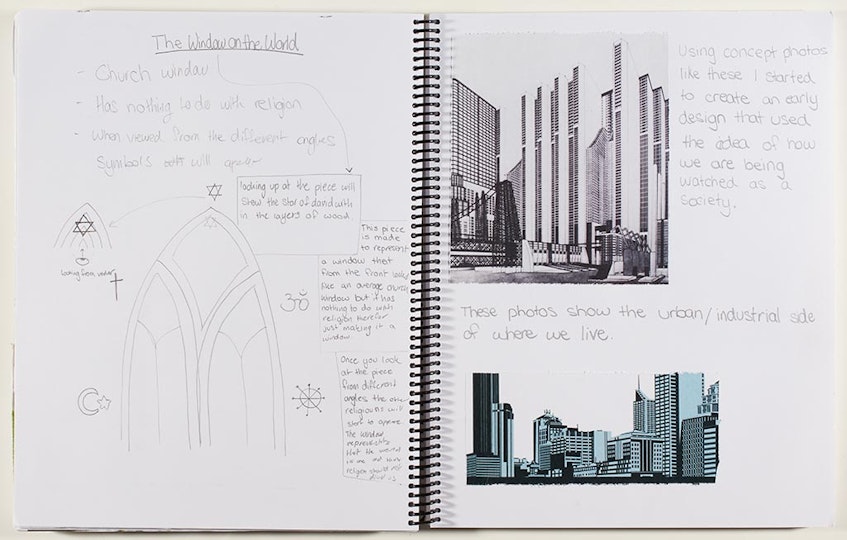 The Window on the World
- Church window
- Has nothing to do with religion
- When viewed from the different angles
symbols will appear
looking up at the piece will
show the star of david with
in the layers of wood.
looking from under
This piece
is made
to represent
a window that
from the front looks
like an average church
window but it has
nothing to do with
religion therefor
just making it a
window.
ॐ
Once you look
at the piece
from different
angles the
religions will
start to appear.
The window
represents
that the world
is one and
religion should not
Using concept photos
like these I started
to create an early
design that used
the idea of how
we are being
watched as a
society.
These photos show the urban/industrial side
of where we live.